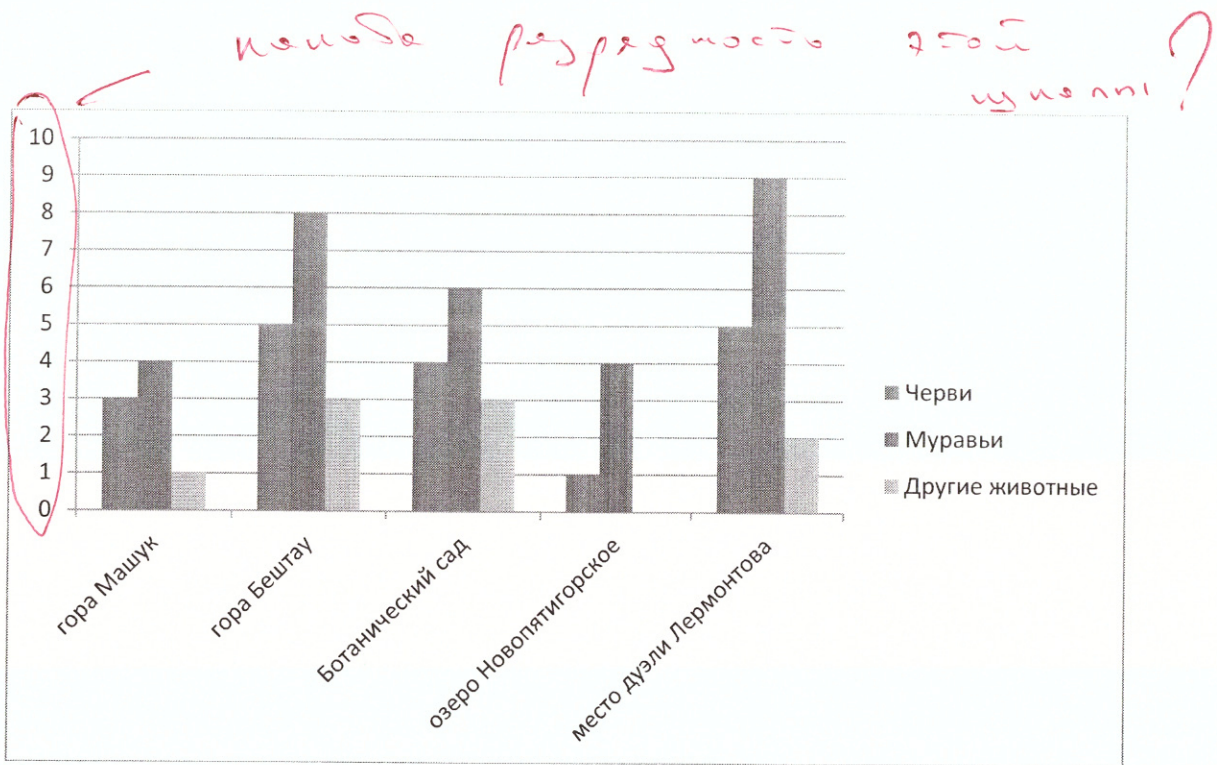 какова разрядность этой
шкалы?
10
9
8
7
6
5
4
3
2
1
0
Черви
Муравьи
Другие животные
гора Машук
гора Бештау
Ботанический сад
озеро Новопятигорское
место дуэли Лермонтова